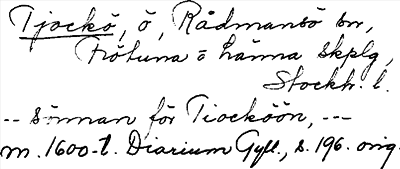 Tjockö, ö, Rådmansö sn,
Frötuna o Länna skplg,
Stockh. l.
-- sunnan för Tiocköön, ---
m. 1600-t. Diarium Gyll., s. 196. orig.